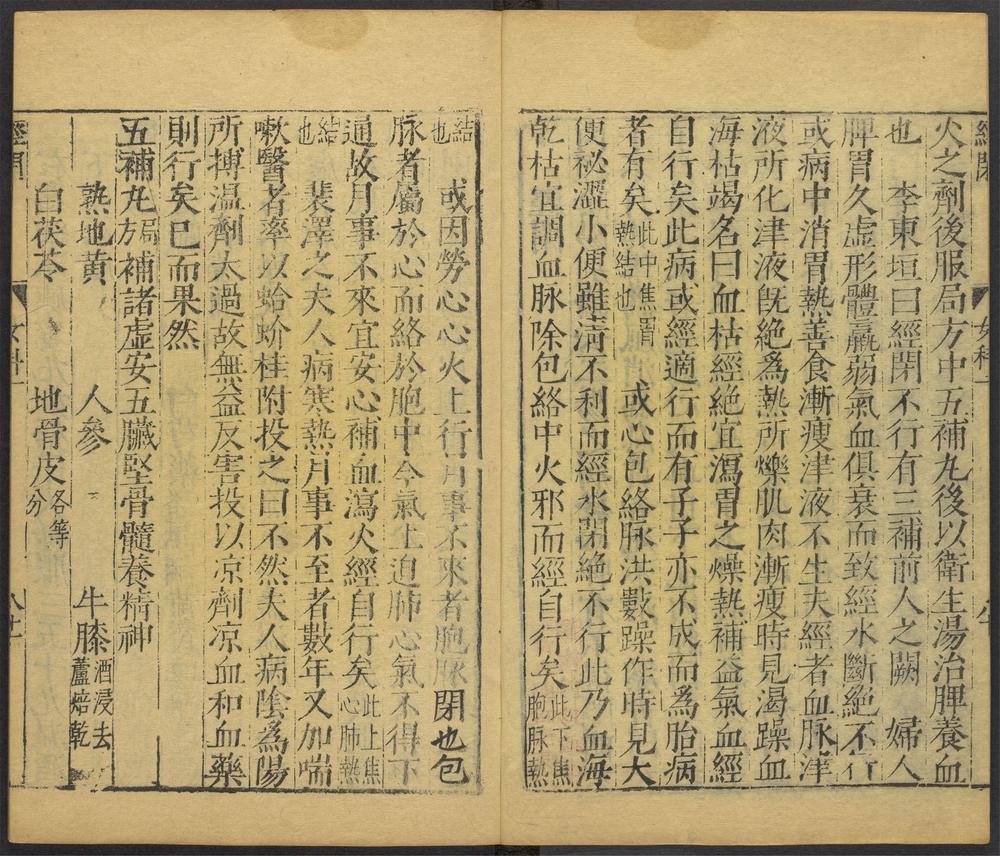 火之劑後服局方中五補丸後以衛生湯治脾養血
也　李東垣曰經閉不行有三補前人之闕　婦人
脾胃久虛形體羸弱氣血俱衰而致經水斷絕不行
或病中消胃熱善食漸瘦津液不生夫經者血脉津
液所化津液旣絕爲熱所爍肌肉漸瘦時見渴躁血
海枯竭名曰血枯經絕宜瀉胃之燥熱補益氣血經
自行矣此病或經適行而有子子亦不成而爲胎病
者有矣此中焦胃熱結也　或心包絡脉洪數躁作時見大
便祕澀小便雖淸不利而經水閉絕不行此乃血海
乾枯宜調血脉除包絡中火邪而經自行矣此下焦胞脉熱
結也　或因勞心心火上行月事不來者胞脉閉也包
脉者屬於心而絡於胞中今氣上迫肺心氣不得下
通故月事不來宜安心補血瀉火經自行矣此上焦心肺熱
結也　裴澤之夫人病寒熱月事不至者數年又加喘
嗽醫者率以蛤蚧桂附投之曰不然夫人病陰爲陽
所搏温劑太過故無益反害投以凉劑凉血和血藥
則行矣已而果然
五補丸局方補諸虛安五臟堅骨髓養精神
熟地黃　人參　牛膝酒浸去蘆焙乾
白茯苓　地骨皮各等分
經閉
女科一